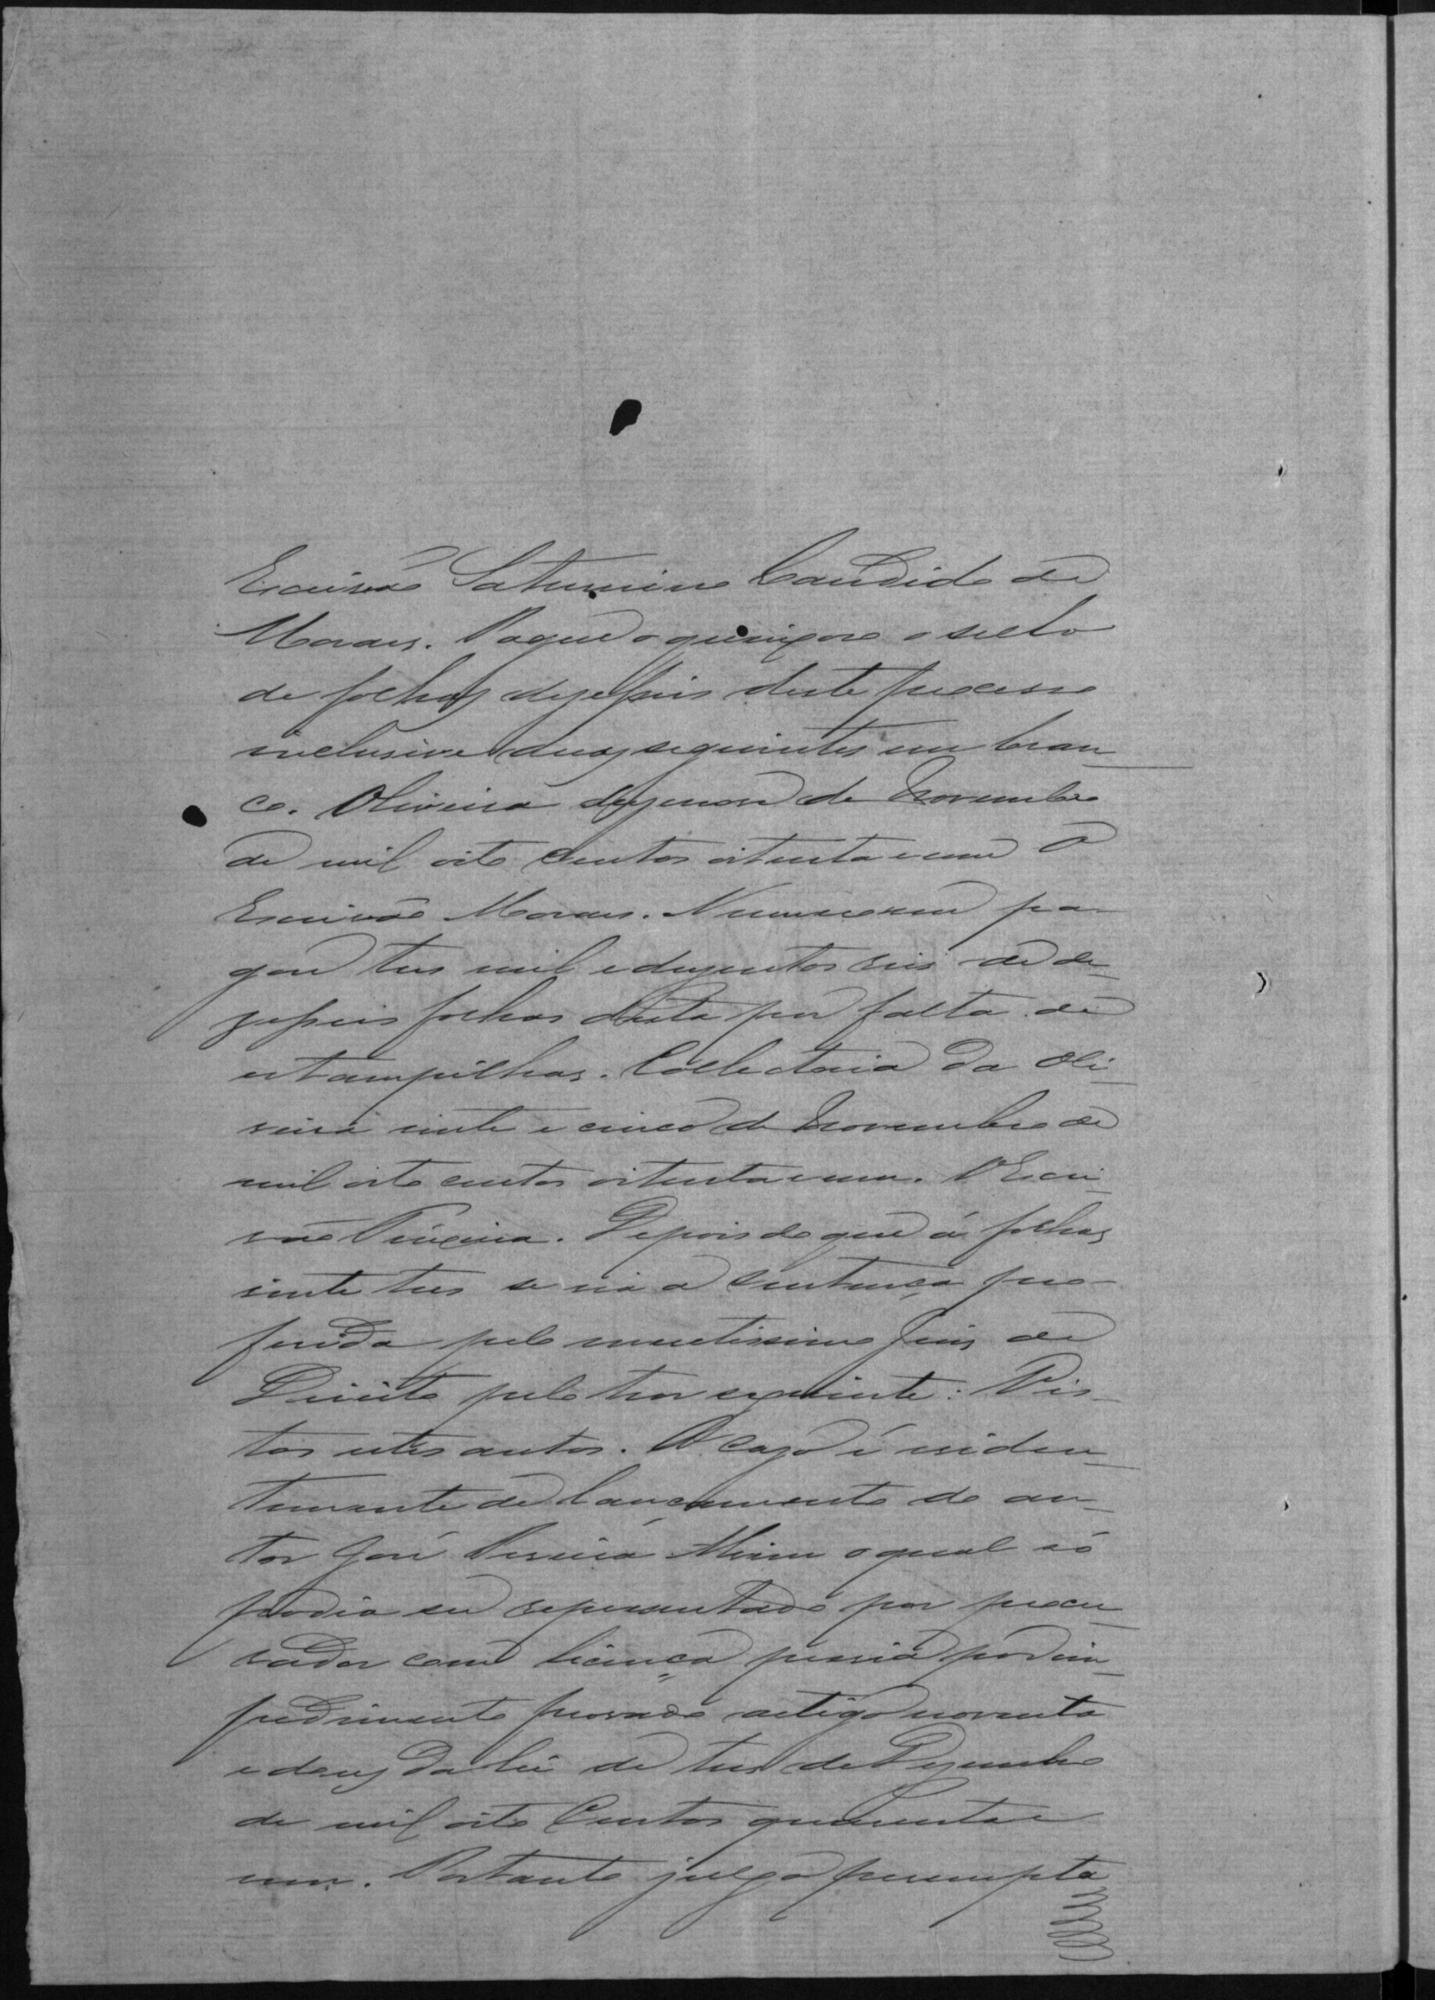 Escrivão Saturnino Candido de
Moraes. Pague o que in pore o sello
de folhas desesseis deste processo
inclusive duas seguintes em bran-
co. Oliveira desenove de Novembro
de mil oito centos oitenta e um O
Escrivão Moraes. Numero um pa-
gou tres mil e dusentos reis de de-
zesseis folhas desta por falta de
estampilhas. Collectoria da Oli-
veira vinte e cinco de Novembro de
mil oito centos oitenta e um. O Escri-
vão Teixeira. Depois do que á folhas
vinte tres se via a Sentença pro-
ferida pelo meretissimo Juis de
Direito pelo theor seguinte: Vis-
tos estes autos. O caso é eviden-
temente de lançamento do au-
tor José Pereira Alvim o qual só
podia ser representado por procu-
rador com licença previa por im-
pedimento provado artigo noventa
e dous da lei de tres de Dezembro
de mil oito Centos quarenta e
um. Portanto julgo perempta